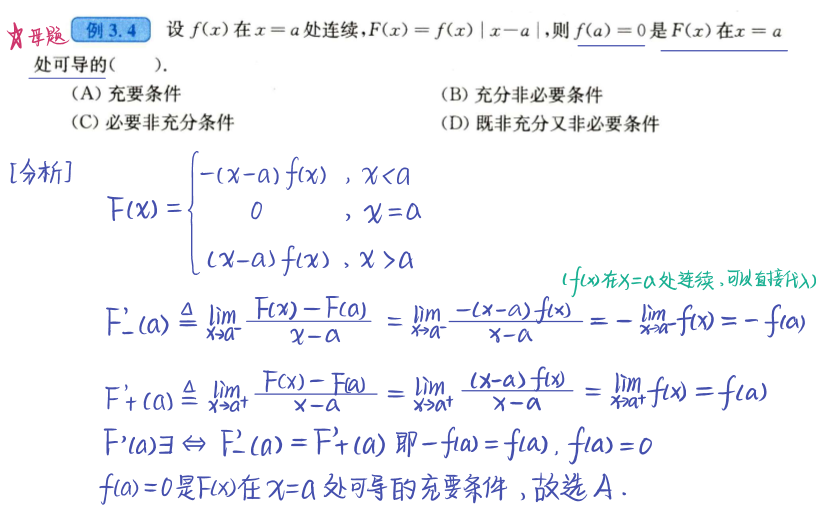 ☆母题 例 3.4 设 f(x) 在 x = a 处连续,F(x) = f(x) | x − a |,则 f(a) = 0 是 F(x) 在 x = a
处可导的( ).
(A) 充要条件 (B) 充分非必要条件
(C) 必要非充分条件 (D) 既非充分又非必要条件
[分析]
−(x−a) f(x) , x<a
F(x) = { 0 , x=a
(x−a) f(x) , x>a
(f(x)在x=a处连续,可以直接代入)
F'₋(a) ≜ lim_{x→a⁻} (F(x)−F(a))/(x−a) = lim_{x→a⁻} (−(x−a)f(x))/(x−a) = − lim_{x→a⁻} f(x) = − f(a)
F'₊(a) ≜ lim_{x→a⁺} (F(x)−F(a))/(x−a) = lim_{x→a⁺} ((x−a)f(x))/(x−a) = lim_{x→a⁺} f(x) = f(a)
F'(a)∃ ⇔ F'₋(a) = F'₊(a) 即 −f(a) = f(a), f(a) = 0
f(a)=0是F(x)在x=a处可导的充要条件,故选A.